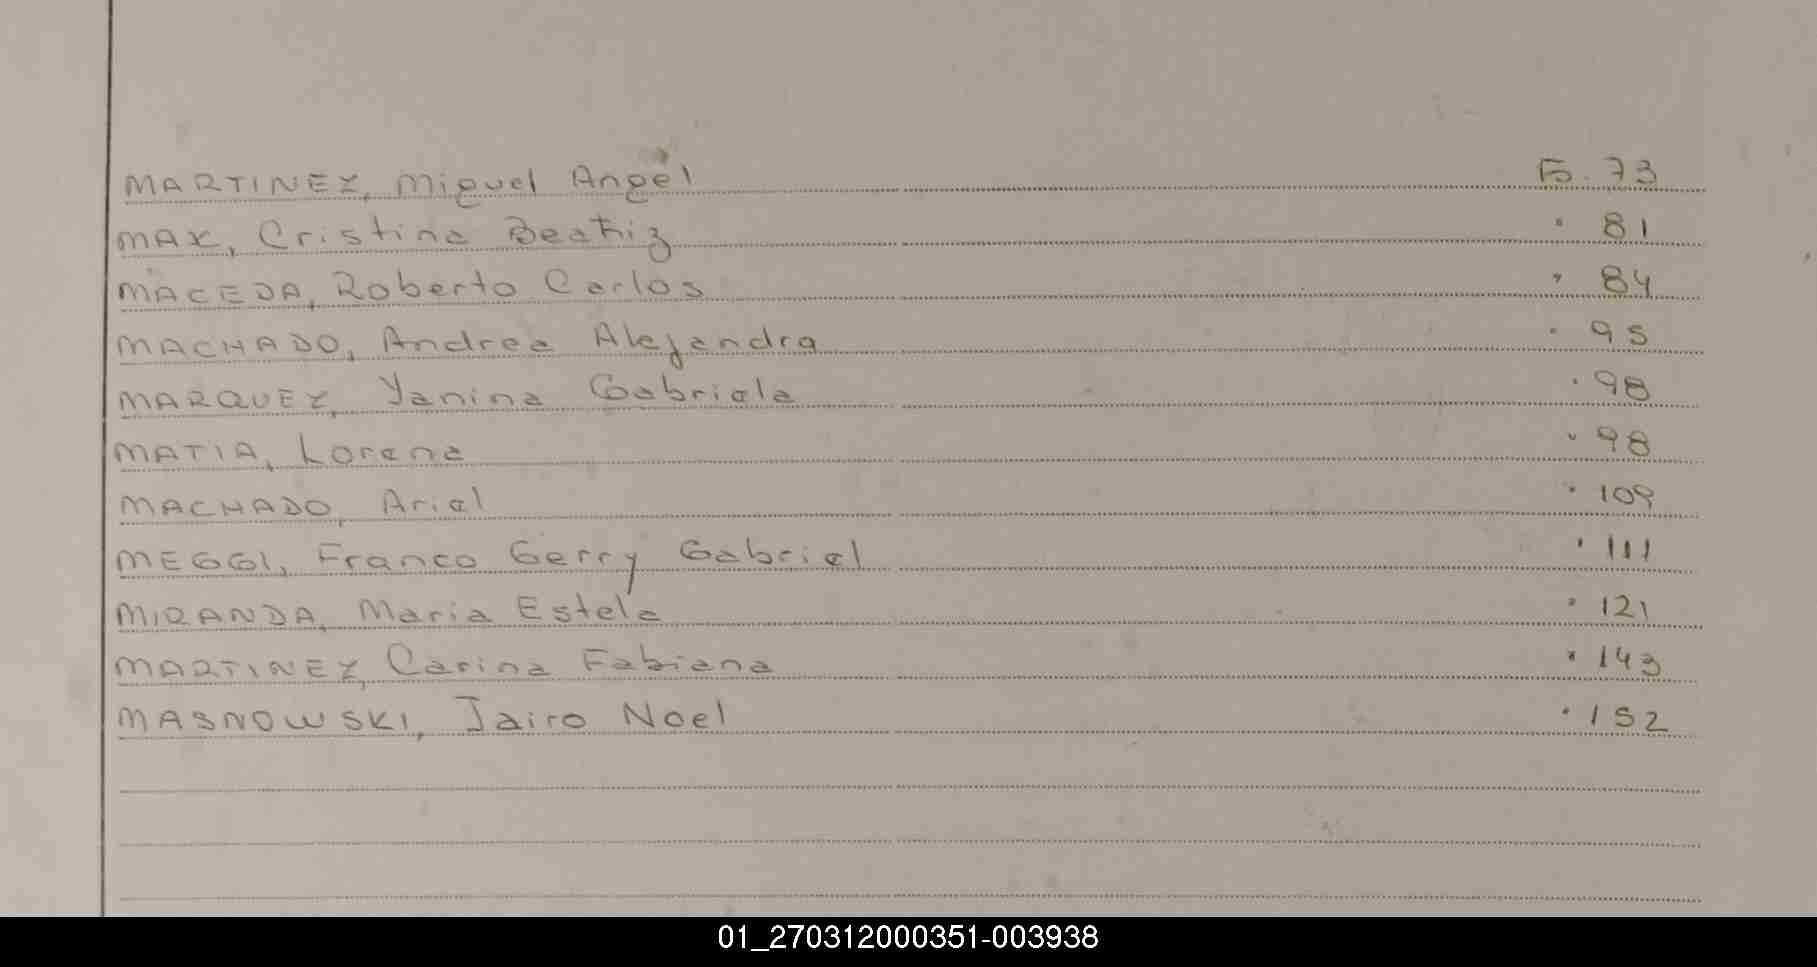 MARTINEZ, Miguel Angel Fo. 73
MAX, Cristina Beatriz " 81
MACEDA, Roberto Carlos " 84
MACHADO, Andrea Alejandra " 95
MARQUEZ, Yanina Gabriela " 98
MATIA, Lorena " 98
MACHADO, Ariel " 109
MEGGI, Franco Gerry Gabriel " 111
MIRANDA, Maria Estela " 121
MARTINEZ, Carina Fabiana " 143
MASNOWSKI, Jairo Noel " 152
01_270312000351-003938